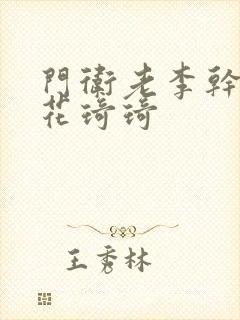 門衛老李幹
花琦琦
王秀林